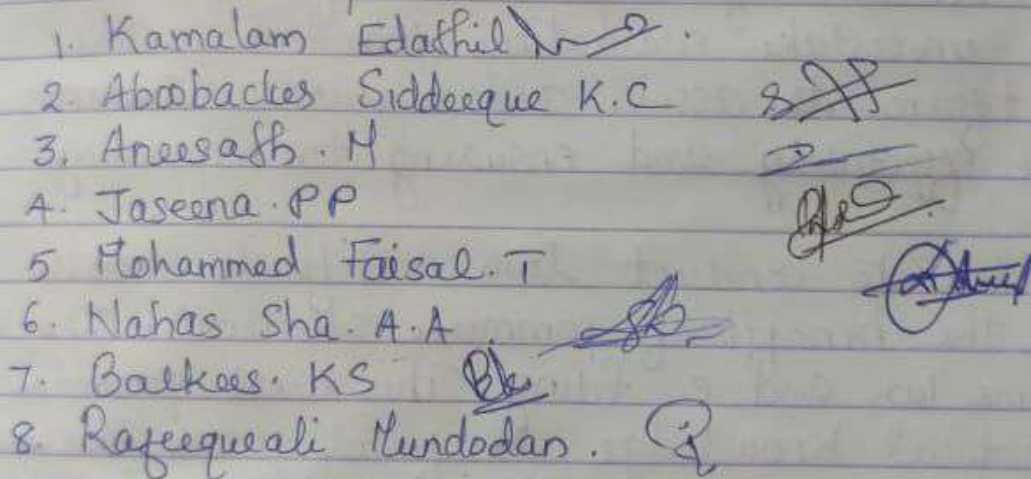 1. Kamalam Edathil
2. Aboobacker Siddeeque K.C
3. Aneesath. M
4. Jaseena. PP
5 Mohammed Faisal. T
6. Nahas Sha. A.A
7. Balkees. KS
8. Rafeequeali Mundodan.